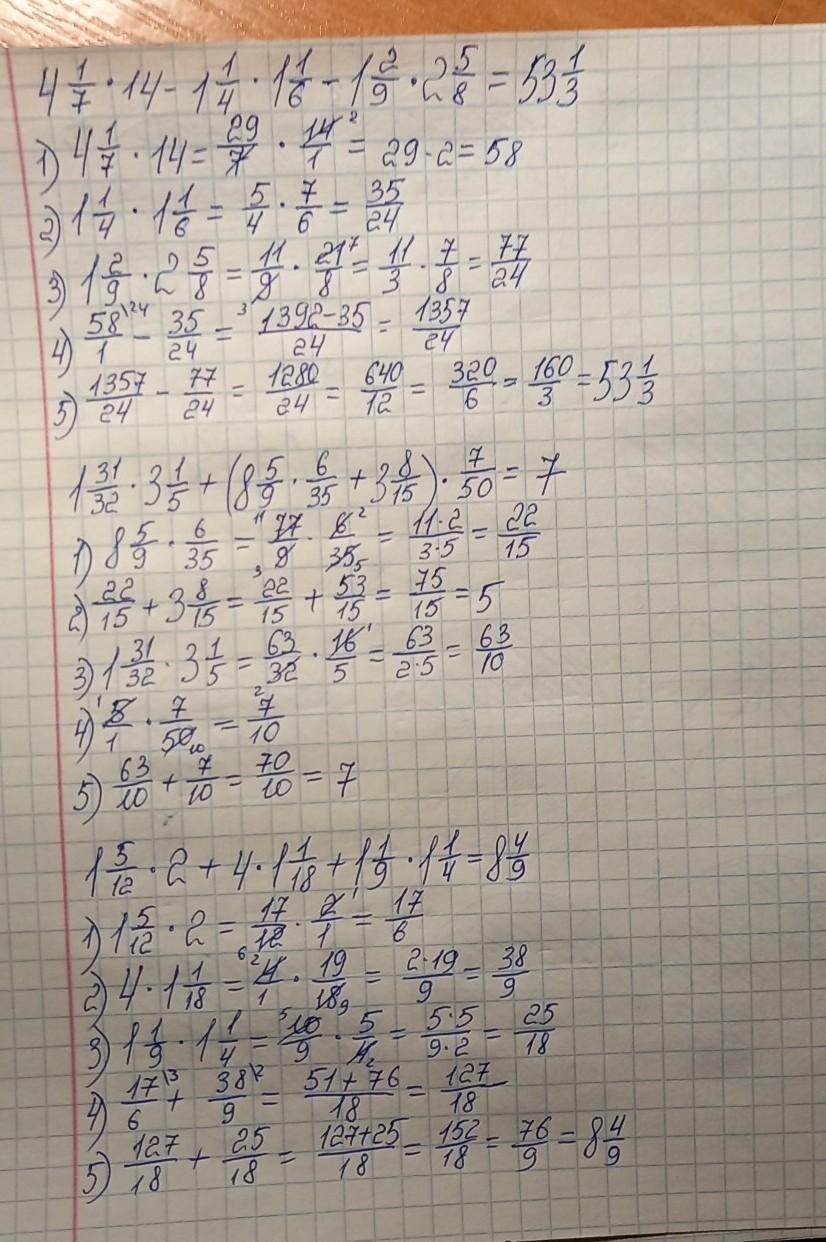 4 1/7 · 14 - 1 1/4 · 1 1/6 - 1 2/9 · 2 5/8 = 53 1/3
1) 4 1/7 · 14 = 29/7 · 14²/1 = 29 · 2 = 58
2) 1 1/4 · 1 1/6 = 5/4 · 7/6 = 35/24
3) 1 2/9 · 2 5/8 = 11/9 · 21⁷/8 = 11/3 · 7/8 = 77/24
4) 58\24/1 - 35/24 = ³ 1392-35/24 = 1357/24
5) 1357/24 - 77/24 = 1280/24 = 640/12 = 320/6 = 160/3 = 53 1/3
1 31/32 · 3 1/5 + (8 5/9 · 6/35 + 3 8/15) · 7/50 = 7
1) 8 5/9 · 6/35 = ¹¹77/₃9 · 6²/35₅ = 11·2/3·5 = 22/15
2) 22/15 + 3 8/15 = 22/15 + 53/15 = 75/15 = 5
3) 1 31/32 · 3 1/5 = 63/32 · 16¹/5 = 63/2·5 = 63/10
4) ¹5/1 · 7/50₁₀ = ²7/10
5) 63/10 + 7/10 = 70/10 = 7
1 5/12 · 2 + 4 · 1 1/18 + 1 1/9 · 1 1/4 = 8 4/9
1) 1 5/12 · 2 = 17/12 · 2¹/1 = 17/6
2) 4 · 1 1/18 = ⁶ ²4/1 · 19/18₉ = 2·19/9 = 38/9
3) 1 1/9 · 1 1/4 = ⁵10/9 · 5/4₂ = 5·5/9·2 = 25/18
4) 17\3/6 + 38\2/9 = 51+76/18 = 127/18
5) 127/18 + 25/18 = 127+25/18 = 152/18 = 76/9 = 8 4/9